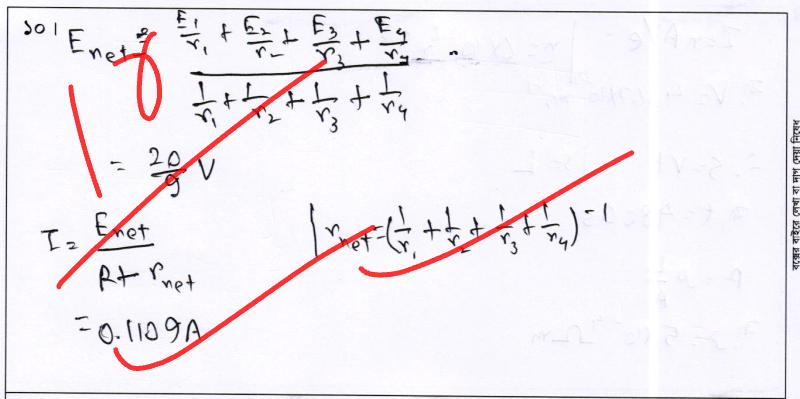 ১০। E_net = (E_1/r_1 + E_2/r_2 + E_3/r_3 + E_4/r_4) / (1/r_1 + 1/r_2 + 1/r_3 + 1/r_4)
= 20/9 V
I = E_net / (R + r_net)
| r_net = (1/r_1 + 1/r_2 + 1/r_3 + 1/r_4)^-1
= 0.1109A
বক্সের বাইরে লেখা বা দাগ দেয়া নিষেধ